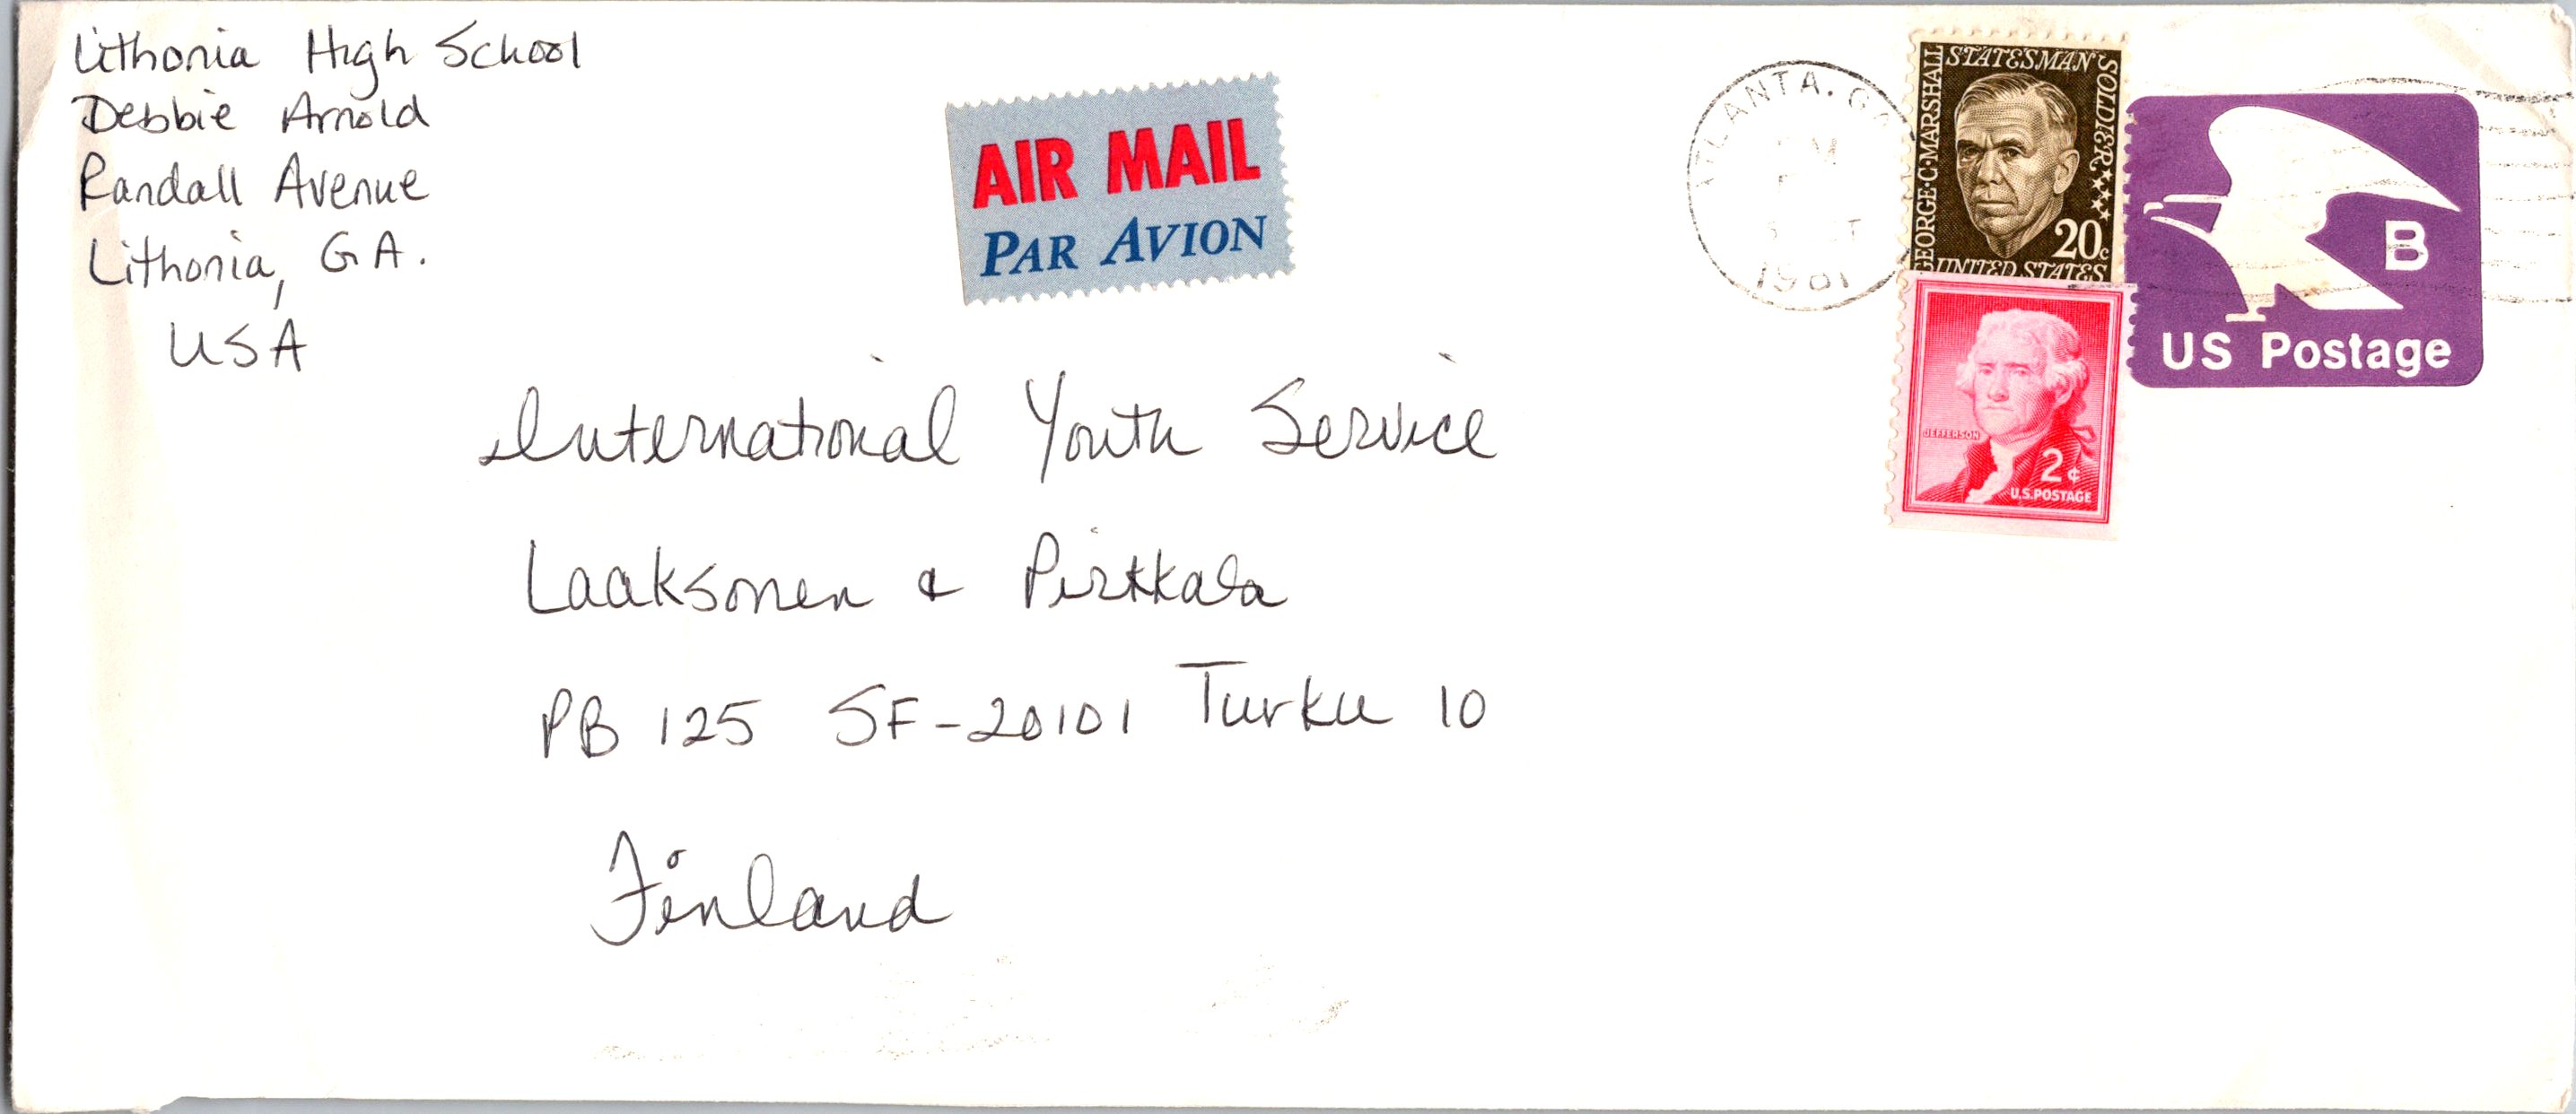 Lithonia High School
Debbie Arnold
Randall Avenue
Lithonia, GA.
USA
AIR MAIL
PAR AVION
ATLANTA, GA
PM
1981
GEORGE·C·MARSHALL
STATESMAN
SOLDIER
20c
UNITED STATES
JEFFERSON
2¢
U.S.POSTAGE
B
US Postage
International Youth Service
Laaksonen & Pirkkala
PB 125 SF-20101 Turku 10
Finland